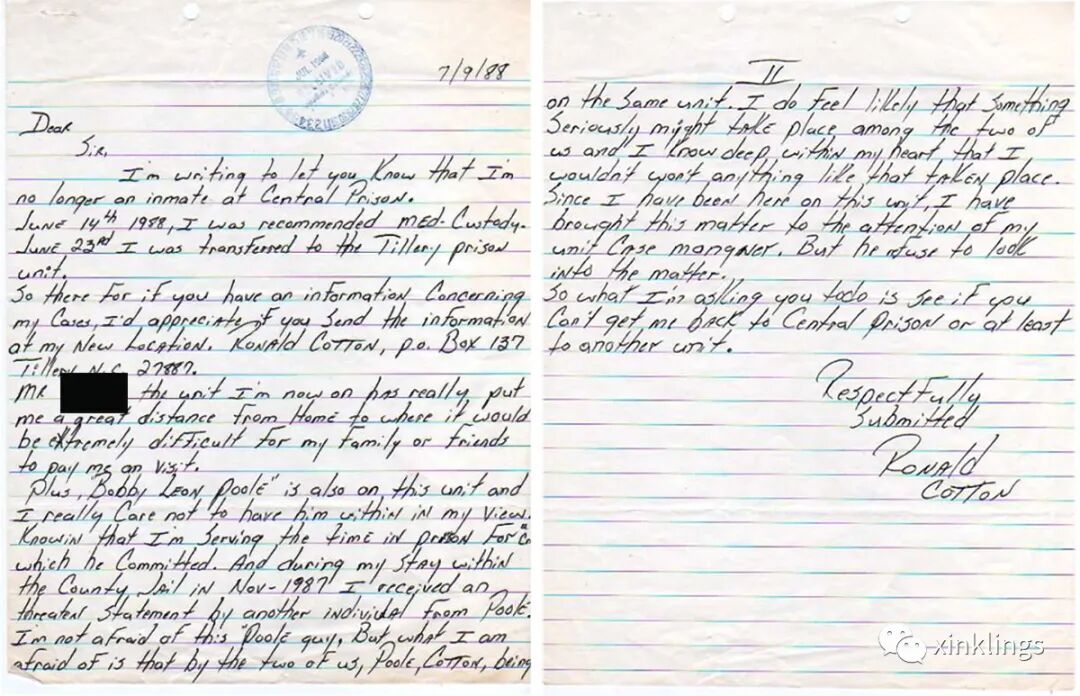 7/9/88
Dear
Sir,
I'm writing to let you Know that I'm
no longer an inmate at Central Prison.
June 14th 1988, I was recommended MED. Custody.
June 23rd I was transferred to the Tillery prison
unit.
So there for if you have an information Concerning
my Cases, I'd appreciate if you send the information
at my New Location. Ronald Cotton, p.o. Box 137
Tillery N.C. 27887.
MR the unit I'm now on has really, put
me a great distance from Home to where it would
be extremely difficult for my family or friends
to pay me an visit.
Plus, "Bobby Leon Poole" is also on this unit and
I really Care not to have him within in my view.
Knowin that I'm serving the time in prison For
which he Committed. And during my stay within
the County Jail in Nov-1987 I received an
threaten statement by another individual from Poole.
I'm not afraid of this "Poole guy, But what I am
afraid of is that by the two of us, Poole, Cotton, being
II
on the same unit. I do feel likely that something
seriously might take place among the two of
us and I know deep, within my heart, that I
wouldn't won't anything like that taken place.
Since I have been here on this unit, I have
brought this matter to the attention of my
unit Case manager. But he refuse to look
into the matter.
So what I'm asking you todo is see if you
Can't get me back to Central Prison or at least
to another unit.
Respectfully
Submitted
Ronald
Cotton
xinklings